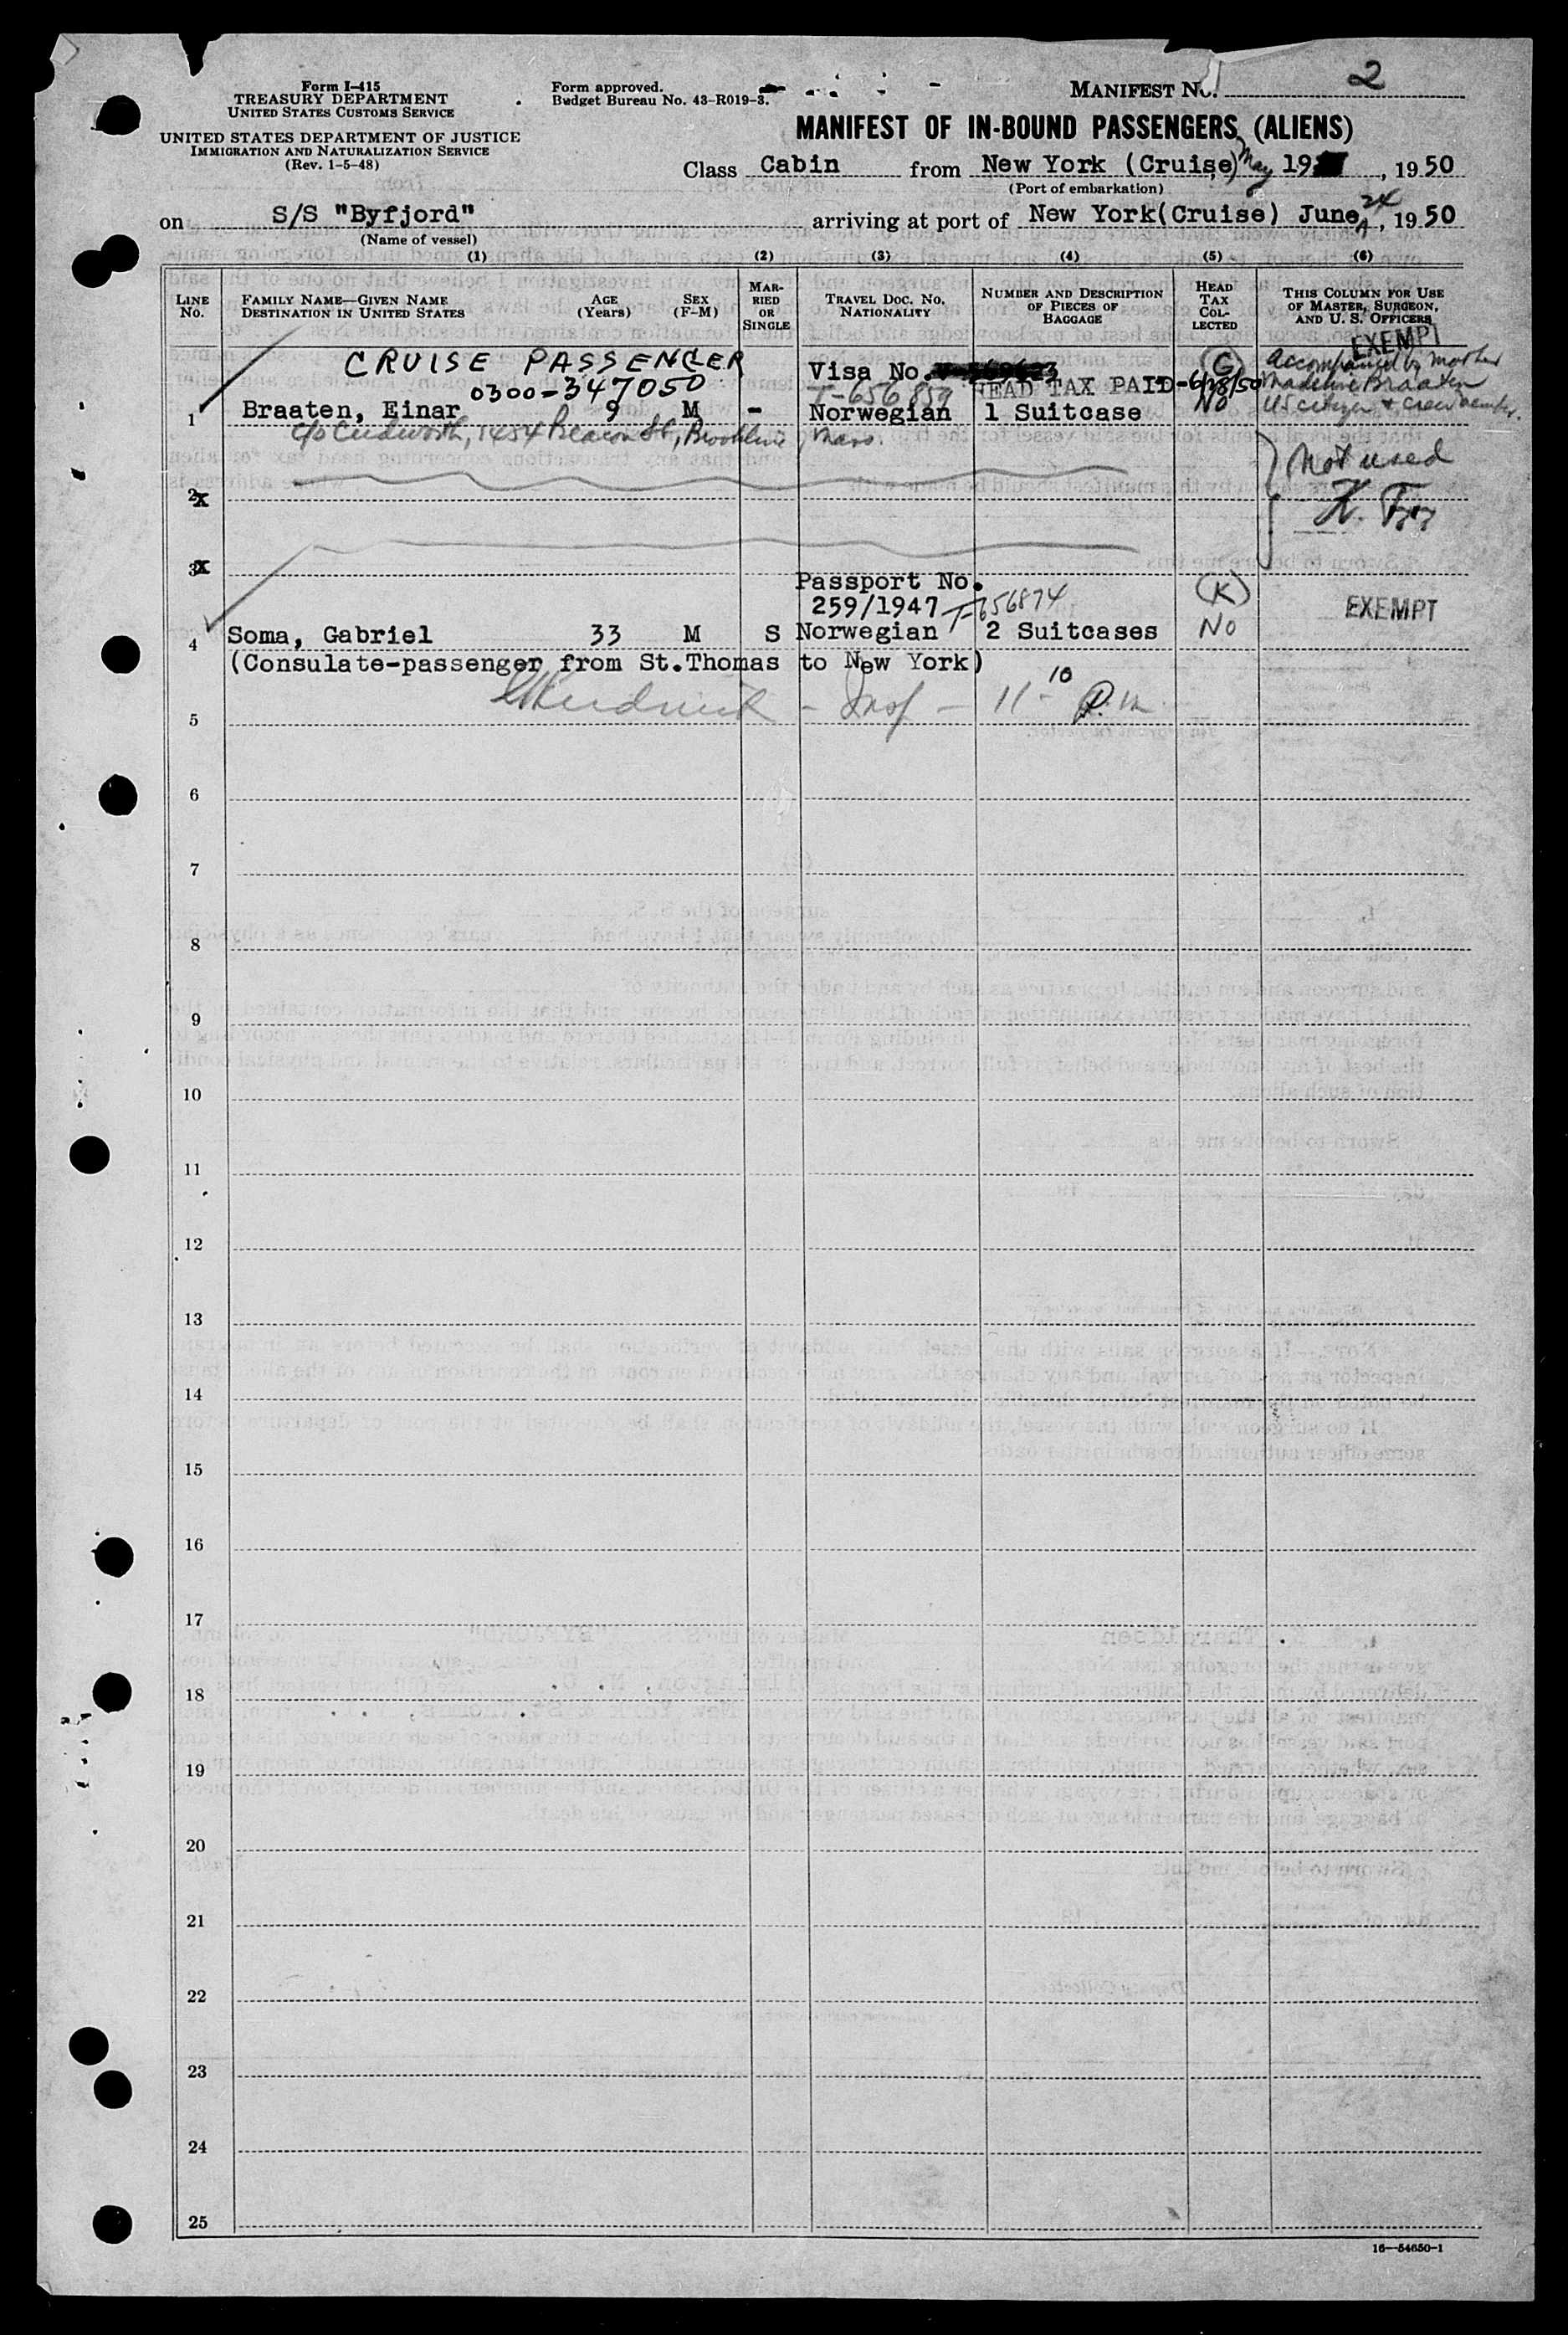 Form I-415
TREASURY DEPARTMENT
UNITED STATES CUSTOMS SERVICE
UNITED STATES DEPARTMENT OF JUSTICE
IMMIGRATION AND NATURALIZATION SERVICE
(Rev. 1-5-48)
Form approved.
Budget Bureau No. 43-R019-3.
MANIFEST No. 2
MANIFEST OF IN-BOUND PASSENGERS (ALIENS)
Class Cabin from New York (Cruise) May 19, 1950
(Port of embarkation)
on S/S "Byfjord" arriving at port of New York(Cruise) June 24, 1950
(Name of vessel)
(1) (2) (3) (4) (5) (6)
LINE No.
FAMILY NAME—GIVEN NAME
DESTINATION IN UNITED STATES
AGE (Years)
SEX (F-M)
MARRIED OR SINGLE
TRAVEL DOC. NO.
NATIONALITY
NUMBER AND DESCRIPTION OF PIECES OF BAGGAGE
HEAD TAX COLLECTED
THIS COLUMN FOR USE OF MASTER, SURGEON, AND U. S. OFFICERS
EXEMPT
CRUISE PASSENGER
0300-347050
Visa No.
T-656859
HEAD TAX PAID-6/28/50
(G)
No
Accompanied by mother
Madeline Braaten
US citizen & crew member.
1 Braaten, Einar 9 M - Norwegian 1 Suitcase
c/o Cudworth, 1454 Beacon St, Brookline, Mass.
2x
Not used
3x
Passport No.
259/1947 T-656874
(K)
No
EXEMPT
4 Soma, Gabriel 33 M S Norwegian 2 Suitcases
(Consulate-passenger from St.Thomas to New York)
5 - Insp - 11-10 P.M
6
7
8
9
10
11
12
13
14
15
16
17
18
19
20
21
22
23
24
25
16—54650-1